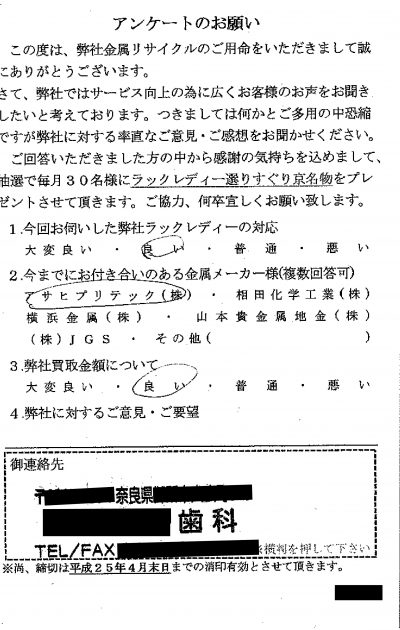 アンケートのお願い
この度は、弊社金属リサイクルのご用命をいただきまして誠
にありがとうございます。
さて、弊社ではサービス向上の為に広くお客様のお声をお聞き
したいと考えております。つきましては何かとご多用の中恐縮
ですが弊社に対する率直なご意見・ご感想をお聞かせください。
ご回答いただきました方の中から感謝の気持ちを込めまして、
抽選で毎月30名様にラックレディー選りすぐり京名物をプレ
ゼントさせて頂きます。ご協力、何卒宜しくお願い致します。
1.今回お伺いした弊社ラックレディーの対応
大変良い ・ 良い ・ 普通 ・ 悪い
2.今までにお付き合いのある金属メーカー様(複数回答可)
アサヒプリテック(株) ・ 相田化学工業(株)
横浜金属(株) ・ 山本貴金属地金(株)
(株)JGS ・ その他( )
3.弊社買取金額について
大変良い ・ 良い ・ 普通 ・ 悪い
4.弊社に対するご意見・ご要望
御連絡先
〒 奈良県
歯科
TEL/FAX 横判を押して下さい
※尚、締切は平成25年4月末日までの消印有効とさせて頂きます。